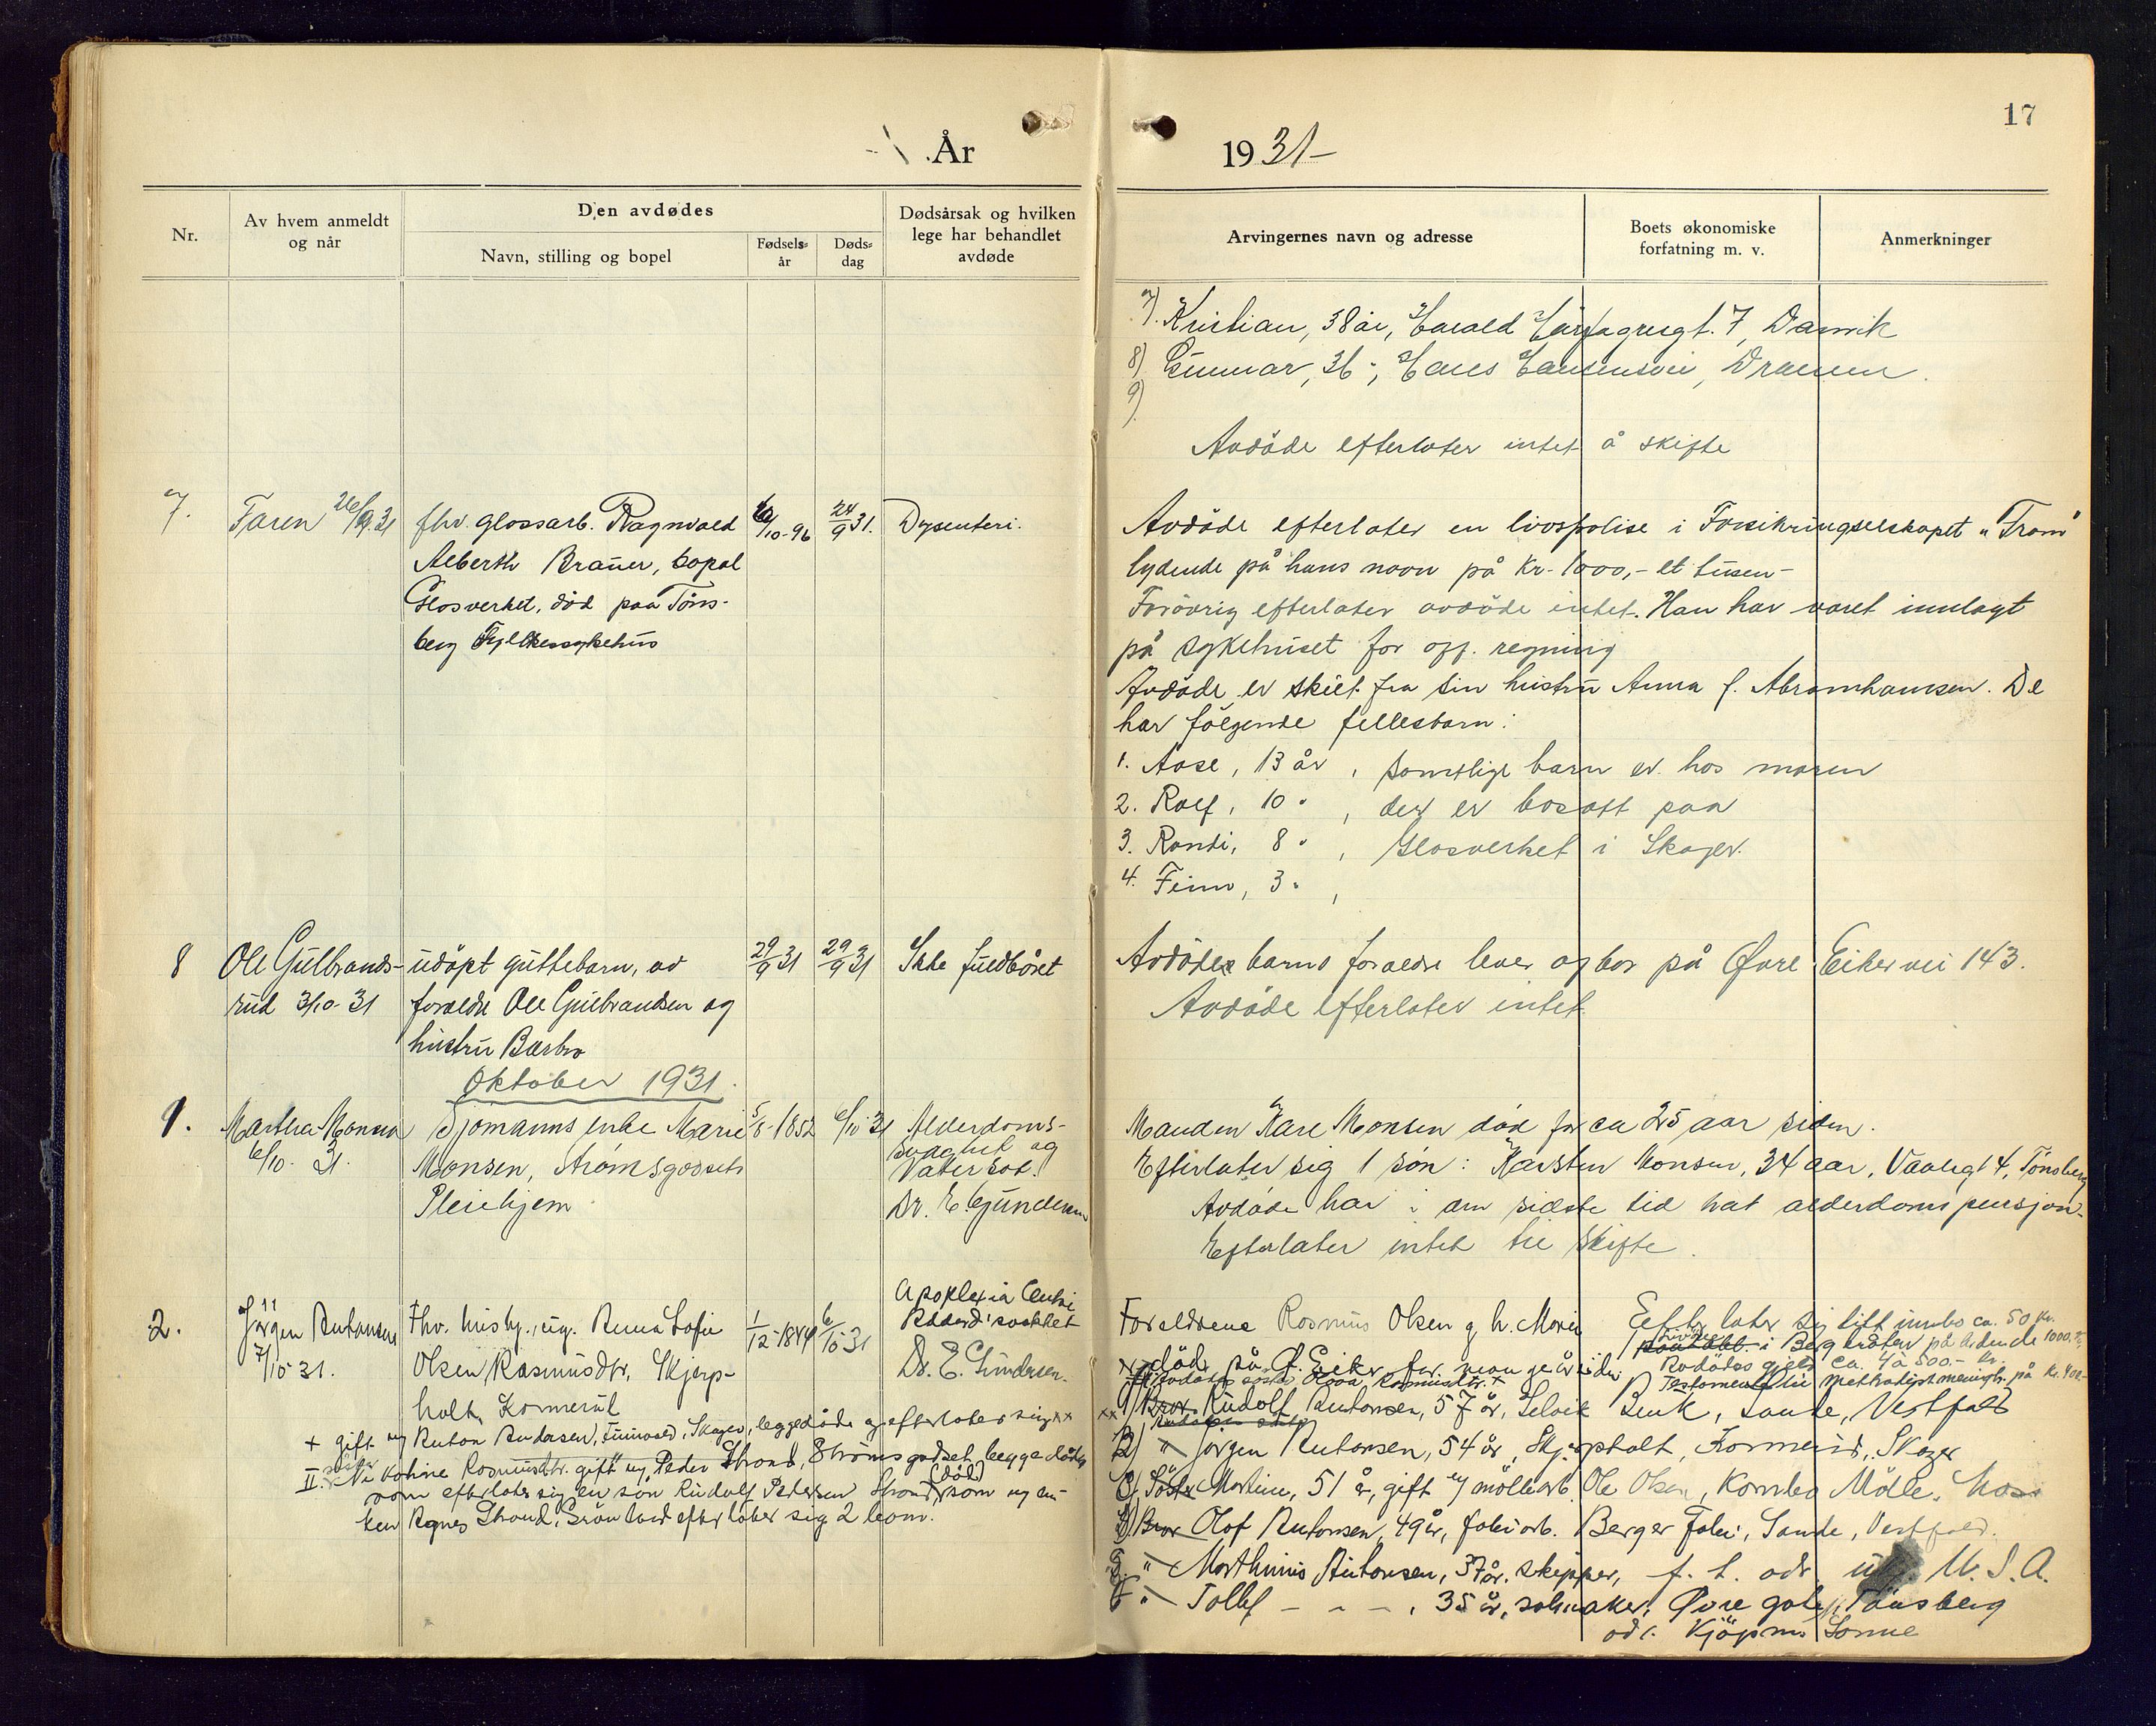 År
1931-
17
Nr.
Av hvem anmeldt
og når
Den avdødes
Navn, stilling og bopel
Fødsels-
år
Døds-
dag
Dødsårsak og hvilken
lege har behandlet
avdøde
Arvingernes navn og adresse
Boets økonomiske
forfatning m. v.
Anmerkninger
7). Kristian, 38 år, Harald Hårfagresgt. 7, Danvik
8) Gunnar, 36 -, Drammen.
9)
Avdøde efterlater intet å skifte
7.
Faren 26/9 31
fhv. glassarb. Ragnvald
Alberth Brauer, bopel
Glasverket, død paa Tøns-
berg Fylkessykehus
/10-96
24/9 31.
Dysenteri.
Avdøde efterlater en livspolise i Forsikringselskapet "Fram"
lydende på hans navn på Kr. 1000,- et tusen-
Forøvrig efterlater avdøde intet. Han har været innlagt
på sykehuset for off. regning
Avdøde er skilt fra sin hustru Anna f. Abramhamsen. De
har følgende fellesbarn:
1. Aase, 13 år, samtlige barn er hos moren
2. Rolf, 10 " , der er bosatt paa
3. Randi, 8 " , Glasverket i Skoger.
4. Finn, 3 " ,
8
Ole Gulbrands-
rud 3/10-31
udøpt guttebarn, av
foreldre Ole Gulbrandsen og
hustru Barbro
29/9 31
29/9 31
Ikke fuldbåret
Avdøde barns foreldre lever og bor på Øvre Eikervei 143.
Avdøde efterlater intet
Oktober 1931.
1.
Martha Monsen
6/10-31.
Sjømanns enke Marie
Monsen, Strømsgodsets
Pleiehjem
5/8-1852
6/10 31
Alderdoms-
svaghet og
Vatersot.
Dr. E. Gundersen
Manden Kare Monsen død for ca 25 aar siden.
Efterlater sig 1 søn: Karsten Monsen, 34 aar, Vaalegt 4, Tønsberg
Avdøde har i den sidste tid hat alderdomspensjon-
Efterlater intet til skifte.
2.
Jørgen Antonsen
7/10 31.
Fhv. hush., ug. Anna Sofie
Olsen Rasmusdtr, Skjerp-
holt, Konnerud
1/12-1849
6/10 31
Apoplexia Cerebri
Dr. E. Gundersen.
+ gift m/ Anton Andersen, Skoger, begge døde og efterlater sig xx
II. søster Nikoline Rasmusdtr. gift m/ Peder Strand, Strømsgodset, begge døde
som efterlater sig en søn Rudolf Pedersen Strand, (død) som og en-
ken Agnes Strand, efterlater sig 2 barn.
Foreldrene Rasmus Olsen og h. Maria
døde på Ø. Eiker for mange år siden
Efterlater sig litt innbo ca. 50 kr.
i Bergkroken pålydende 1000.-
Avdødes gjeld ca. 4 à 500.- kr.
Testamente til methodistmenigh. på kr. 400.-
xx 1) Bror Rudolf Antonsen, 57 år, Selvik Bruk, Sande, Vestfold
2) " Jørgen Antonsen, 54 år, Skjerpholt, Konnerud, Skoger
3) Søster Martine, 51 år, gift m/ møllearb. Ole Olsen, Mølle, Moss
4) Bror Olaf Antonsen, 49 år, fabr.arb. Berger Fabr., Sande, Vestfold.
5. " Marthinius Antonsen, 37 år. skipper, f. t. adr. U. S. A.
6 " Tollef - - - , 35 år, Øvre gate, Tønsberg
adr. Kjøpm. Sonne